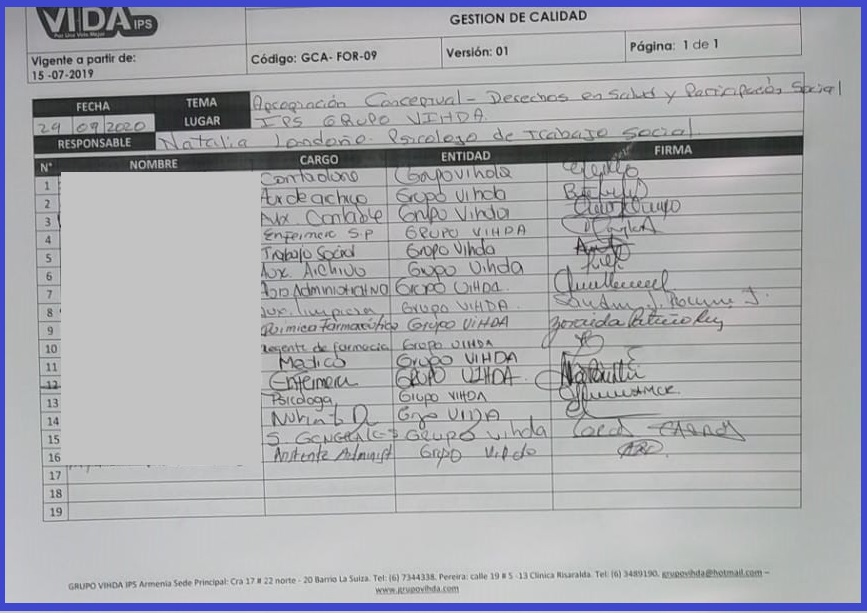 VIDA IPS
Por Una Vida Mejor
GESTION DE CALIDAD
Vigente a partir de:
15 -07-2019
Código: GCA- FOR-09
Versión: 01
Página: 1 de 1
FECHA
29 09 2020
TEMA Apropiación Conceptual - Derechos en Salud y Participación Social
LUGAR IPS GRUPO VIHDA.
RESPONSABLE Natalia Londoño. Psicologo de Trabajo Social.
N° NOMBRE CARGO ENTIDAD FIRMA
1 Grupo vihda
2 Aux de achivo Grupo Vihda
3 Aux Contable Grupo Vihda
4 Enfermera S.P GRUPO VIHDA
5 Trabajo Social Grupo Vihda
6 Aux. Archivo Grupo Vihda
7 Administrativo Grupo VIHDA.
8 Aux. limpieza Grupo VIHDA.
9 Química farmacéutica Grupo VIHDA Zoraida
10 Regente de farmacia Grupo VIHDA
11 Medico Grupo VIHDA
12 Enfermera GRUPO VIHDA.
13 Psicologa Grupo VIHDA
14 Grupo VIHDA
15 Grupo vihda
16 Asistente Administ Grupo
17
18
19
GRUPO VIHDA IPS Armenia Sede Principal: Cra 17 # 22 norte - 20 Barrio La Suiza. Tel: (6) 7344338. Pereira: calle 19 # 5 -13 Clinica Risaralda. Tel: (6) 3489190. grupovihda@hotmail.com –
www.grupovihda.com